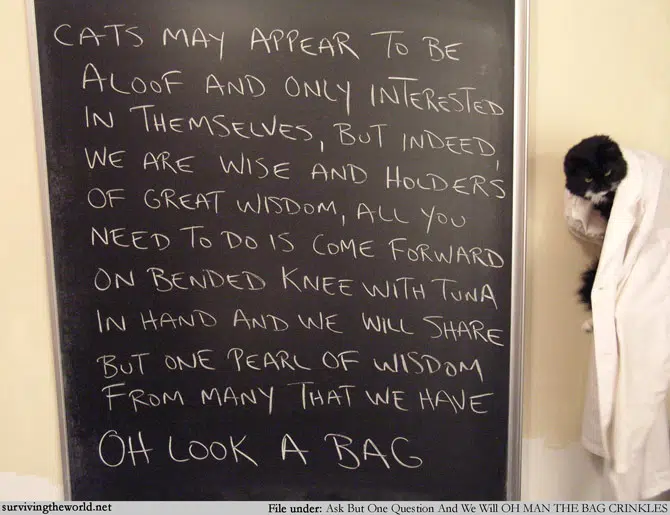 CATS MAY APPEAR TO BE
ALOOF AND ONLY INTERESTED
IN THEMSELVES, BUT INDEED,
WE ARE WISE AND HOLDERS
OF GREAT WISDOM, ALL YOU
NEED TO DO IS COME FORWARD
ON BENDED KNEE WITH TUNA
IN HAND AND WE WILL SHARE
BUT ONE PEARL OF WISDOM
FROM MANY THAT WE HAVE
OH LOOK A BAG
survivingtheworld.net
File under: Ask But One Question And We Will OH MAN THE BAG CRINKLES